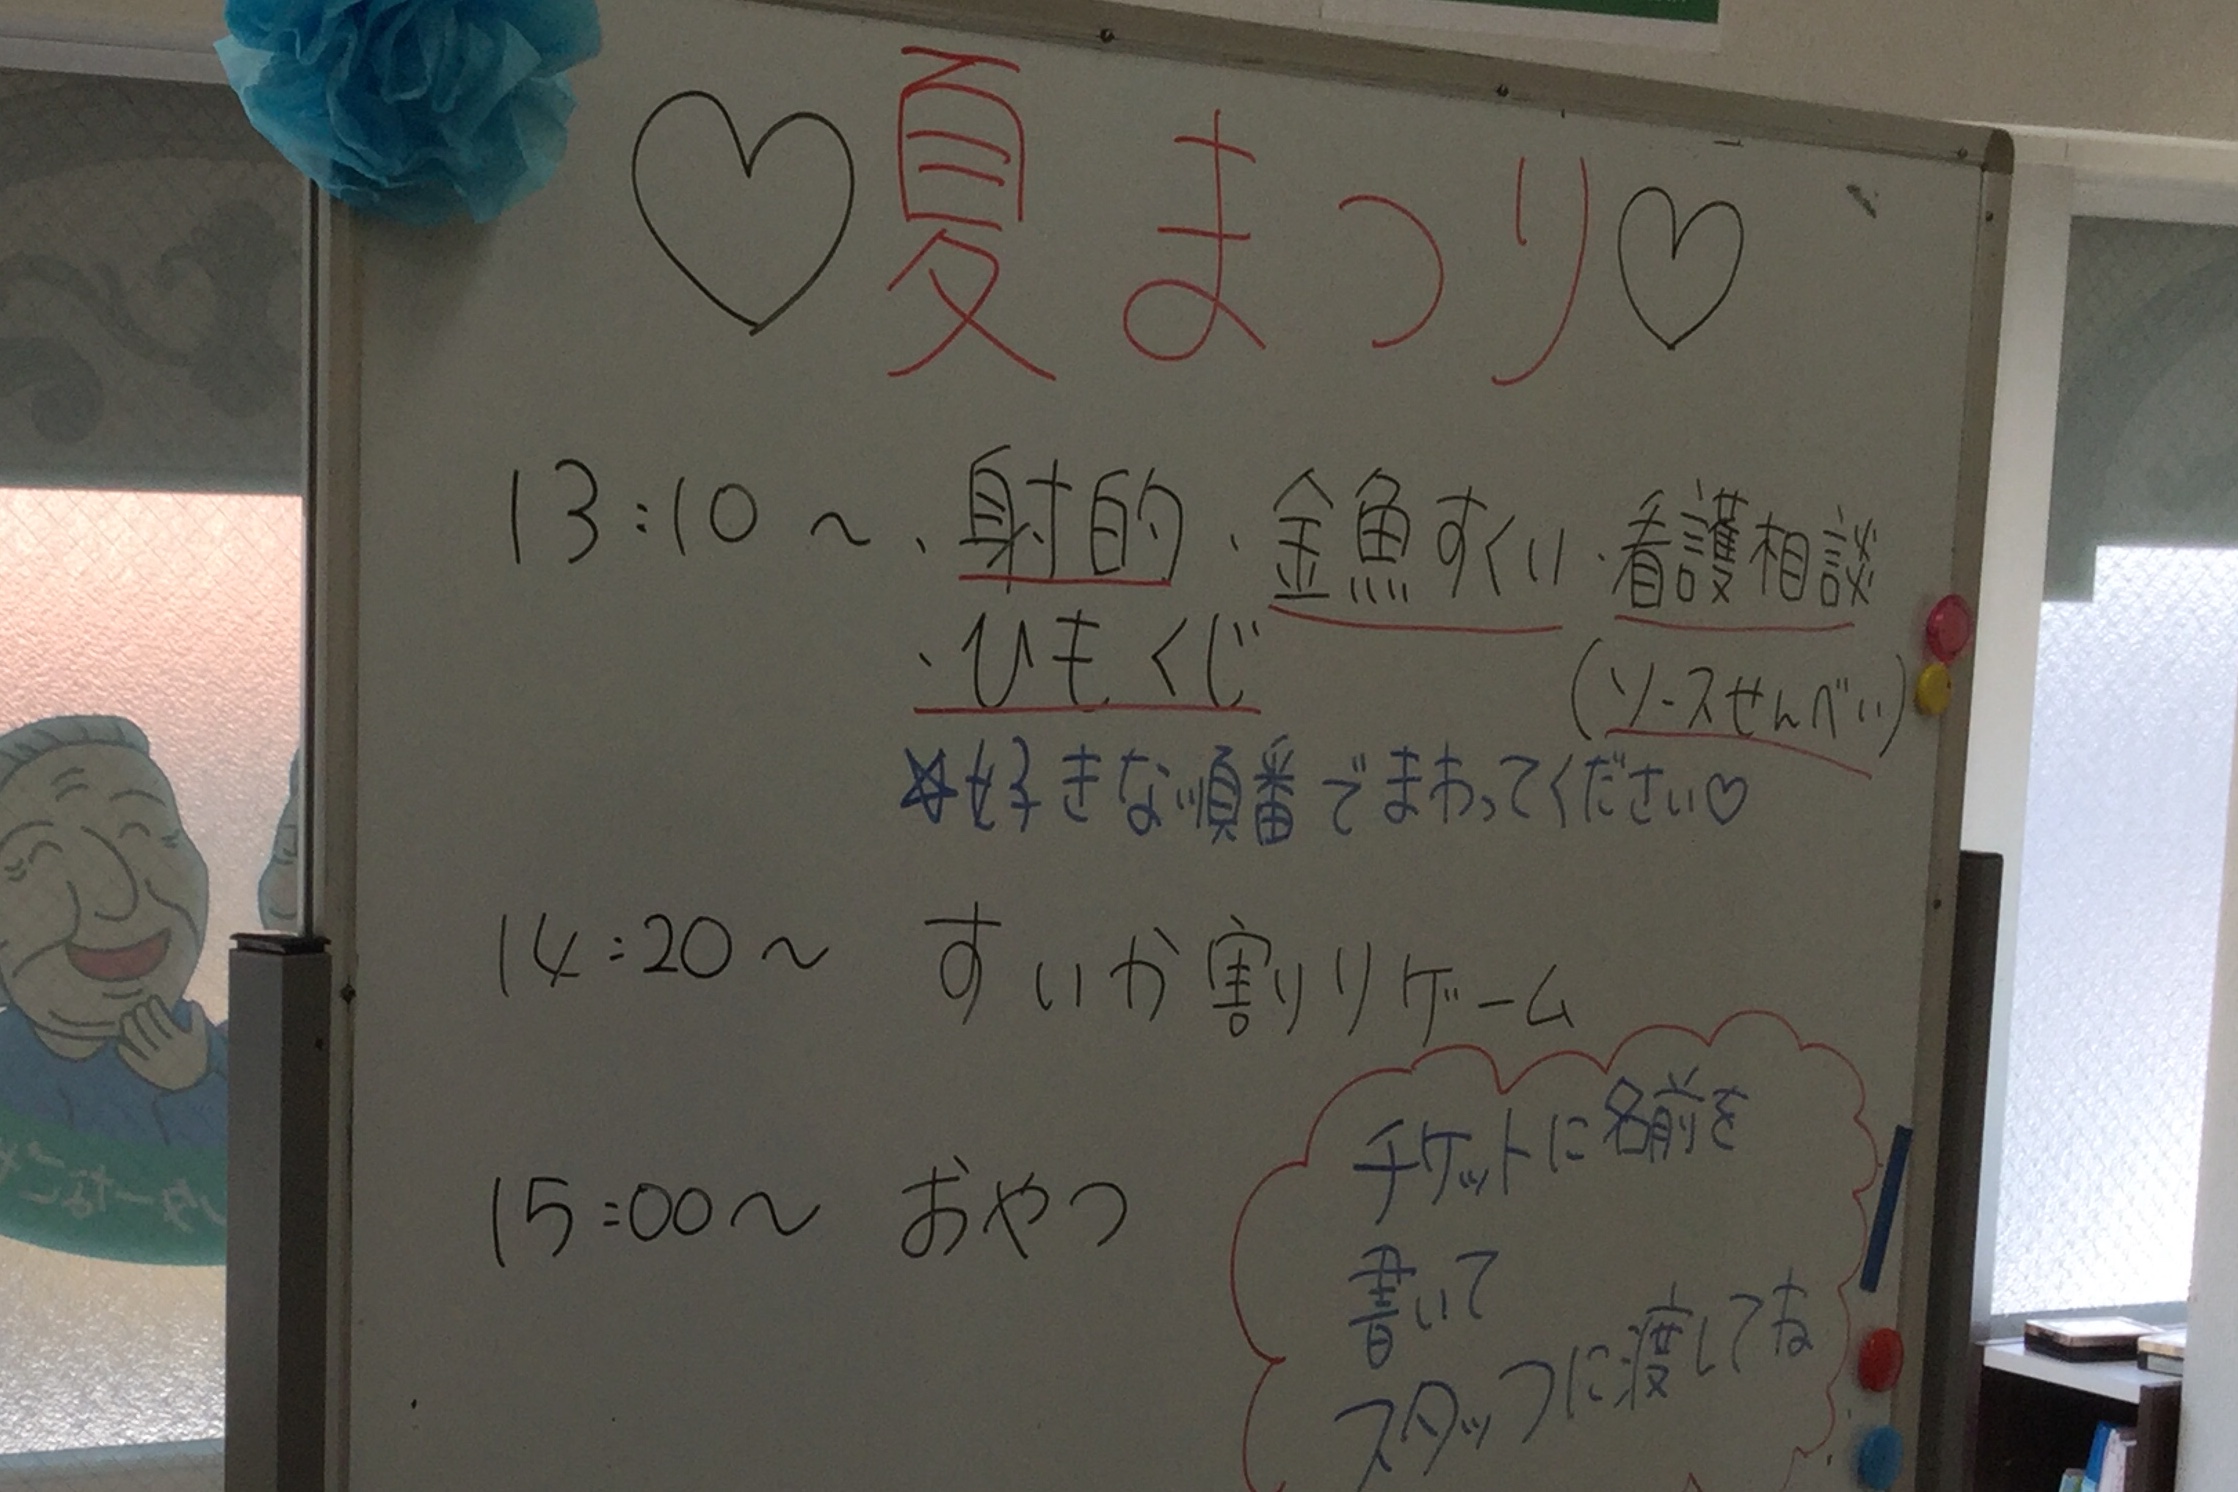 ♡夏まつり♡
13:10〜 ・射的 ・金魚すくい ・看護相談
・ひもくじ (ソースせんべい)
☆好きな順番でまわってください♡
14:20〜 すいか割りゲーム
15:00〜 おやつ
チケットに名前を
書いて
スタッフに渡してね